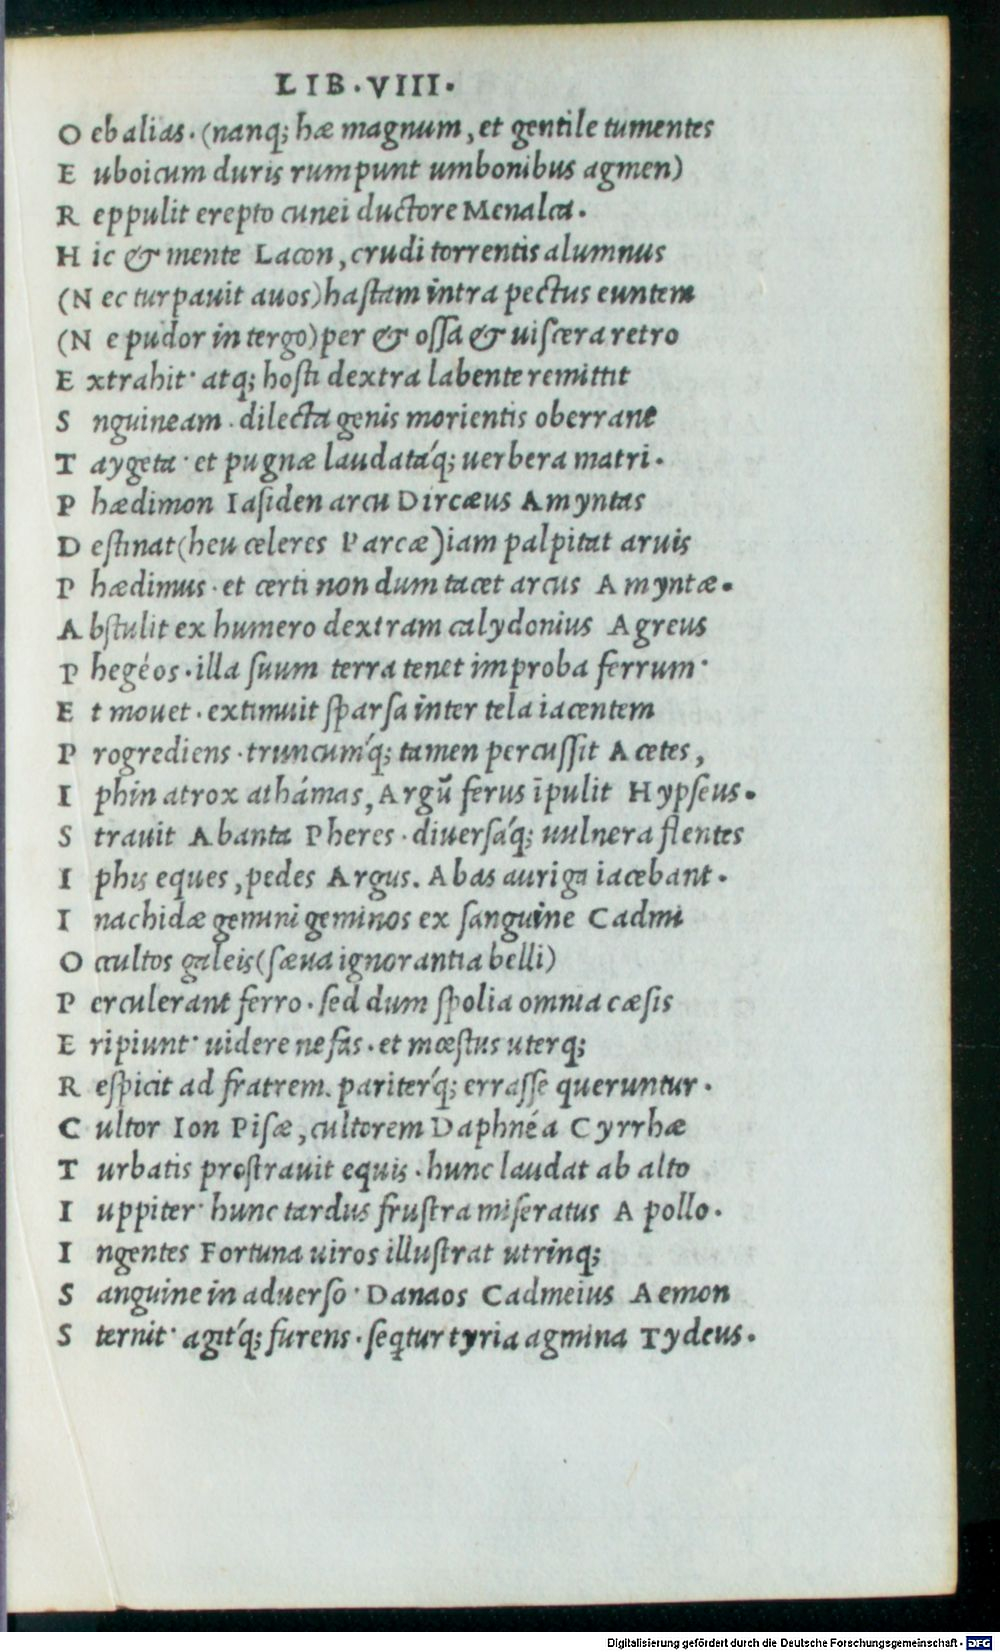 LIB.VIII.
O ebalias.(nanq; hæ magnum, et gentile tumentes
E uboicum duris rumpunt umbonibus agmen)
R eppulit erepto cunei ductore Menalca.
H ic & mente Lacon, crudi torrentis alumnus
(N ec turpauit auos)hastam intra pectus euntem
(N e pudor in tergo)per & ossa & uiscera retro
E xtrahit· atq; hosti dextra labente remittit
S nguineam. dilecta genis morientis oberrant
T aygeta· et pugnæ laudatáq; uerbera matri.
P hædimon Iasiden arcu Dircæus Amyntas
D estinat(heu celeres Parcæ)iam palpitat aruis
P hædimus. et certi non dum tacet arcus Amyntæ.
A bstulit ex humero dextram calydonius Agreus
P hegéos.illa suum terra tenet improba ferrum·
E t mouet. extimuit sparsa inter tela iacentem
P rogrediens. truncumq́; tamen percussit Acetes,
I phin atrox athámas, Argū ferus īpulit Hypseus.
S trauit Abanta Pheres. diuersáq; uulnera flentes
I phis eques, pedes Argus. Abas auriga iacebant.
I nachidæ gemini geminos ex sanguine Cadmi
O ccultos galeis(sæua ignorantia belli)
P erculerant ferro. sed dum spolia omnia cæsis
E ripiunt· uidere nefas. et mœstus uterq;
R espicit ad fratrem. pariterq́; errasse queruntur.
C ultor Ion Pisæ, cultorem Daphnéa Cyrrhæ
T urbatis prostrauit equis. hunc laudat ab alto
I uppiter· hunc tardus frustra miseratus Apollo.
I ngentes Fortuna uiros illustrat utrinq;
S anguine in aduerso· Danaos Cadmeius Aemon
S ternit· agitq́; furens. seqtur tyria agmina Tydeus.
Digitalisierung gefördert durch die Deutsche Forschungsgemeinschaft - DFG